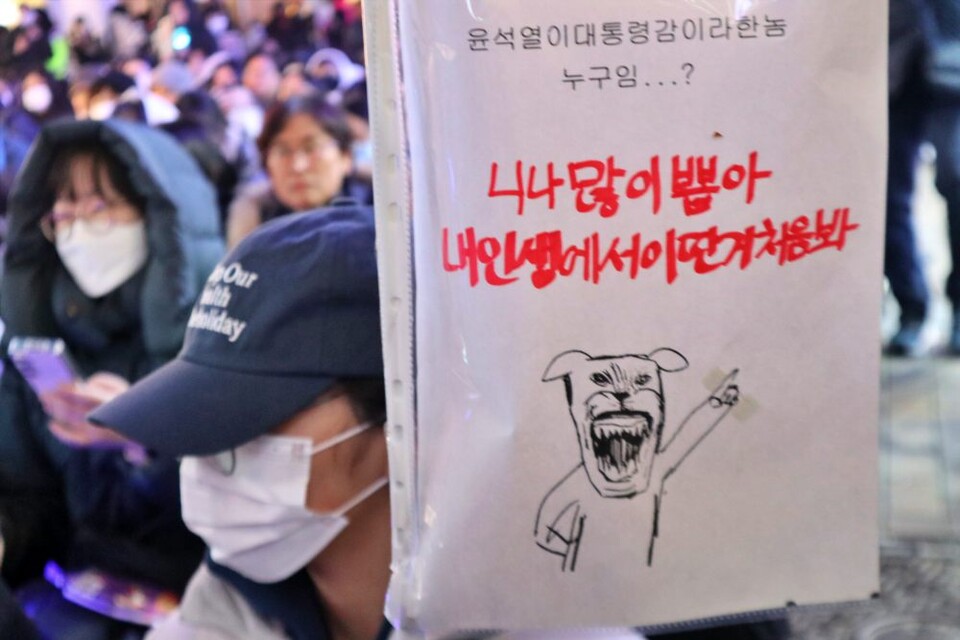 윤석열이대통령감이라한놈
누구임...?
니나 많이 뽑아
내인생에서이딴거처음봐
Our